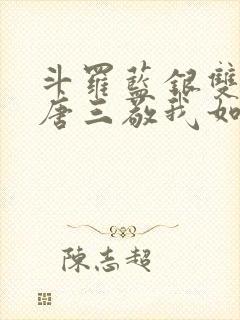 斗羅藍銀雙
唐三敬我如
陳志超